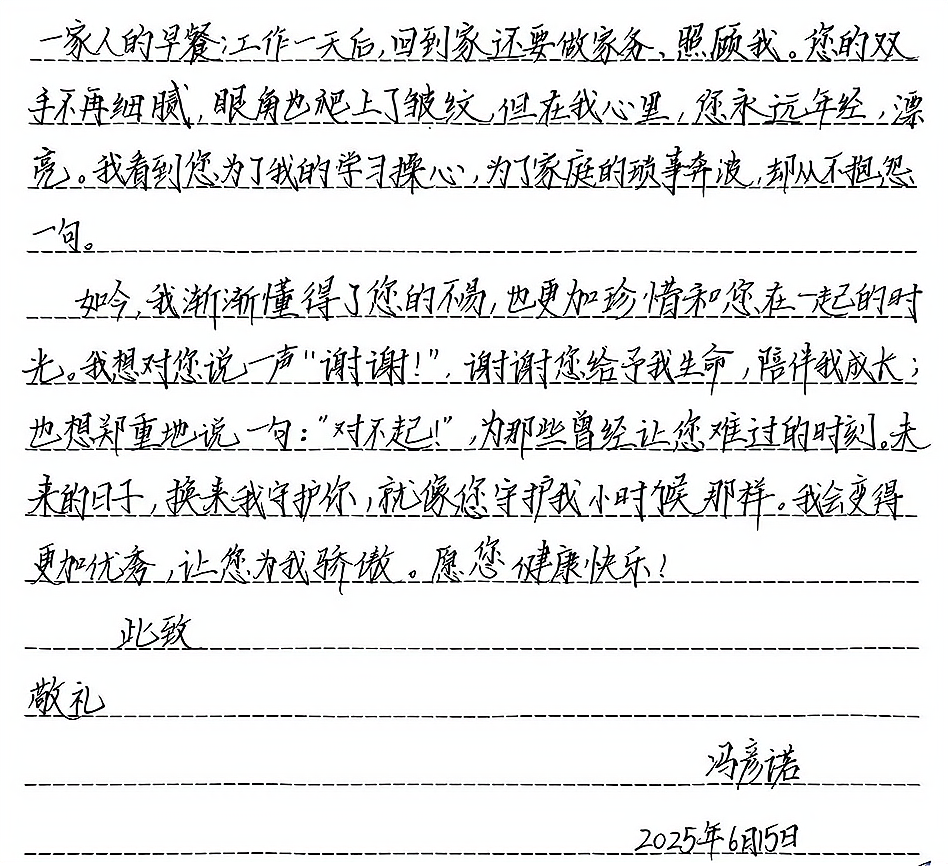 一家人的早餐；工作一天后，回到家还要做家务、照顾我。您的双
手不再细腻，眼角也爬上了皱纹，但在我心里，您永远年经，漂
亮。我看到您为了我的学习操心，为了家庭的琐事奔波，却从不抱怨
一句。
如今，我渐渐懂得了您的不易，也更加珍惜和您在一起的时
光。我想对您说一声“谢谢！”，谢谢您给予我生命，陪伴我成长；
也想郑重地说一句：“对不起！”，为那些曾经让您难过的时刻。未
来的日子，换来我守护你，就像您守护我小时候那样。我会变得
更加优秀，让您为我骄傲。愿您健康快乐！
此致
敬礼
冯彦诺
2025年6月15日